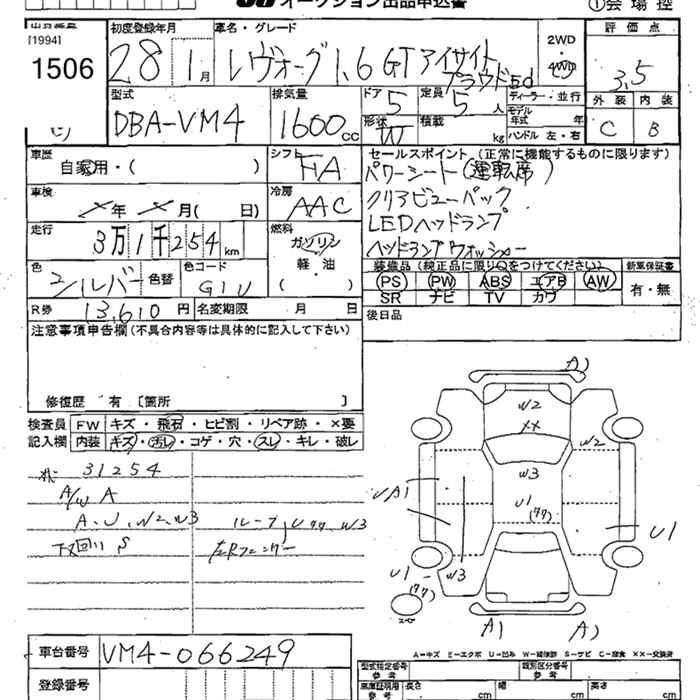 オークション出品申込書
①会場控
[1994]
1506
初度登録年月
28 1月
車名・グレード
レヴォーグ 1.6 GTアイサイト
プラウドEd
2WD
・
4WD
評価点
3.5
外装 内装
C B
型式
DBA-VM4
排気量
1600cc
ドア 5
定員 5人
ディーラー・並行
モデル年式 年
形状 W
積載 kg
ハンドル 左・右
車歴
自家用・( )
シフト
FA
セールスポイント (正常に機能するものに限ります)
パワーシート(運転席)
クリアビューパック
LEDヘッドランプ
ヘッドランプウォッシャー
車検
年 月( 日)
冷房
AAC
走行
3万1千254km
燃料
ガソリン
軽・油
( )
色
シルバー
色替
色コード
G1U
装備品(純正品に限り○をつけてください)
新車保証書
PS PW ABS エアB AW
有・無
SR ナビ TV カワ
R券 13,610円
名変期限 月 日
後日品
注意事項申告欄(不具合内容等は具体的に記入して下さい)
修復歴 有 [箇所 ]
検査員
記入欄
FW キズ・飛石・ヒビ割・リペア跡・×要
内装 キズ・汚レ・コゲ・穴・スレ・キレ・破レ
31254
A/W A
A、U、W2、W3
下回り S
ルーフ U ワワ W3
左Rフェンダー
A)
W2
××
W2
W3
U1
(ワワ)
UA1
U1
U1
(ワワ)
W3
W3
スペア
A)
A)
車台番号 VM4-066249
登録番号
A=キズ E=エクボ U=凹み W=補修跡 S=サビ C=腐食 ××=交換済
型式指定番号
参考
類別区分番号
参考
車庫証明用
参考
長さ cm
幅 cm
高さ cm